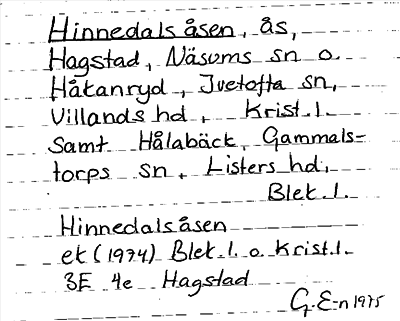 Hinnedalsåsen, ås,
Hagstad, Näsums sn o.
Håkanryd, Ivetofta sn,
Villands hd, Krist. l.
Samt Hålabäck, Gammals-
torps sn, Listers hd,
Blek. l.
Hinnedalsåsen
ek (1974) Blek. l. o. Krist. l.
3E 4e Hagstad
G. E-n 1975